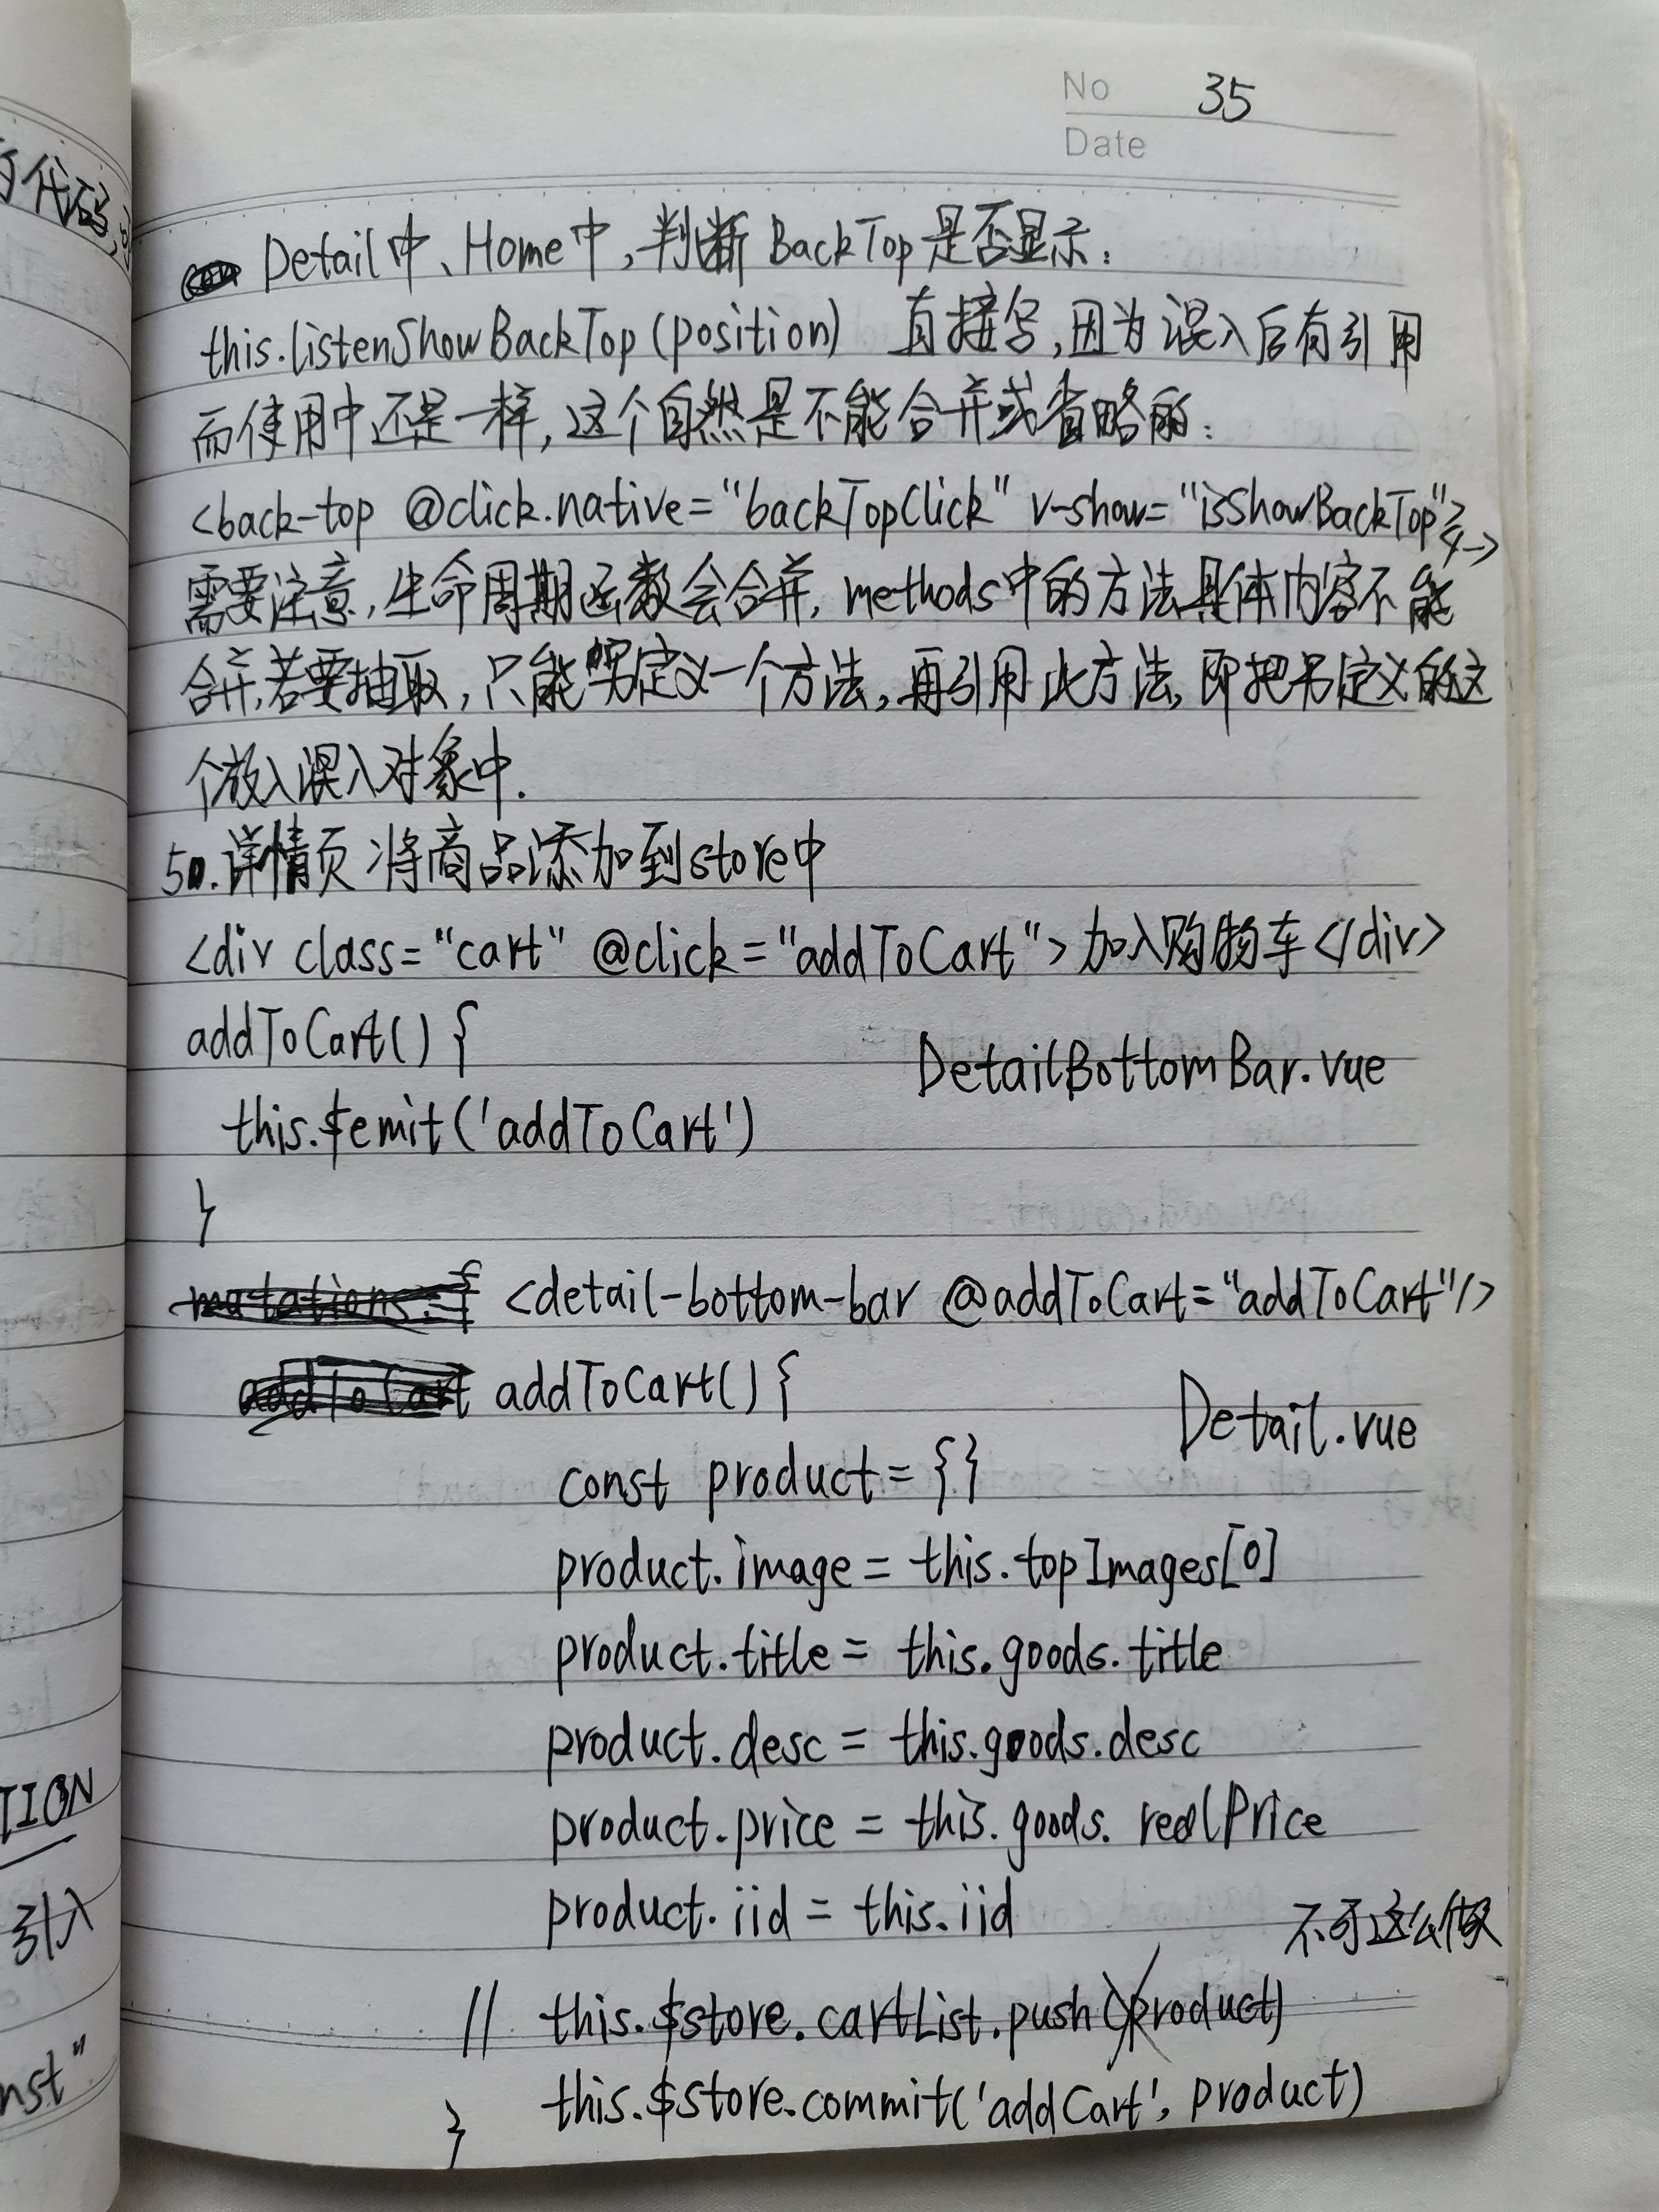 No 35
Date
Detail中、Home中,判断BackTop是否显示:
this.listenShowBackTop(position) 直接写,因为混入后有引用
而使用中还是一样,这个自然是不能合并或省略的:
<back-top @click.native="backTopClick" v-show="isShowBackTop">
需要注意,生命周期函数会合并,methods中的方法具体内容不能
合并,若要抽取,只能另定义一个方法,再引用此方法,即把另定义的这
个放入混入对象中.
50.详情页 将商品添加到store中
<div class="cart" @click="addToCart">加入购物车</div>
addToCart() {
DetailBottomBar.vue
this.$emit('addToCart')
}
mutations: { <detail-bottom-bar @addToCart="addToCart"/>
addToCart addToCart() {
Detail.vue
const product = {}
product.image = this.topImages[0]
product.title = this.goods.title
product.desc = this.goods.desc
product.price = this.goods.realPrice
product.iid = this.iid
不可这么做
// this.$store.cartList.push(product)
this.$store.commit('addCart', product)
}
的代码,
TION
引入
nst"